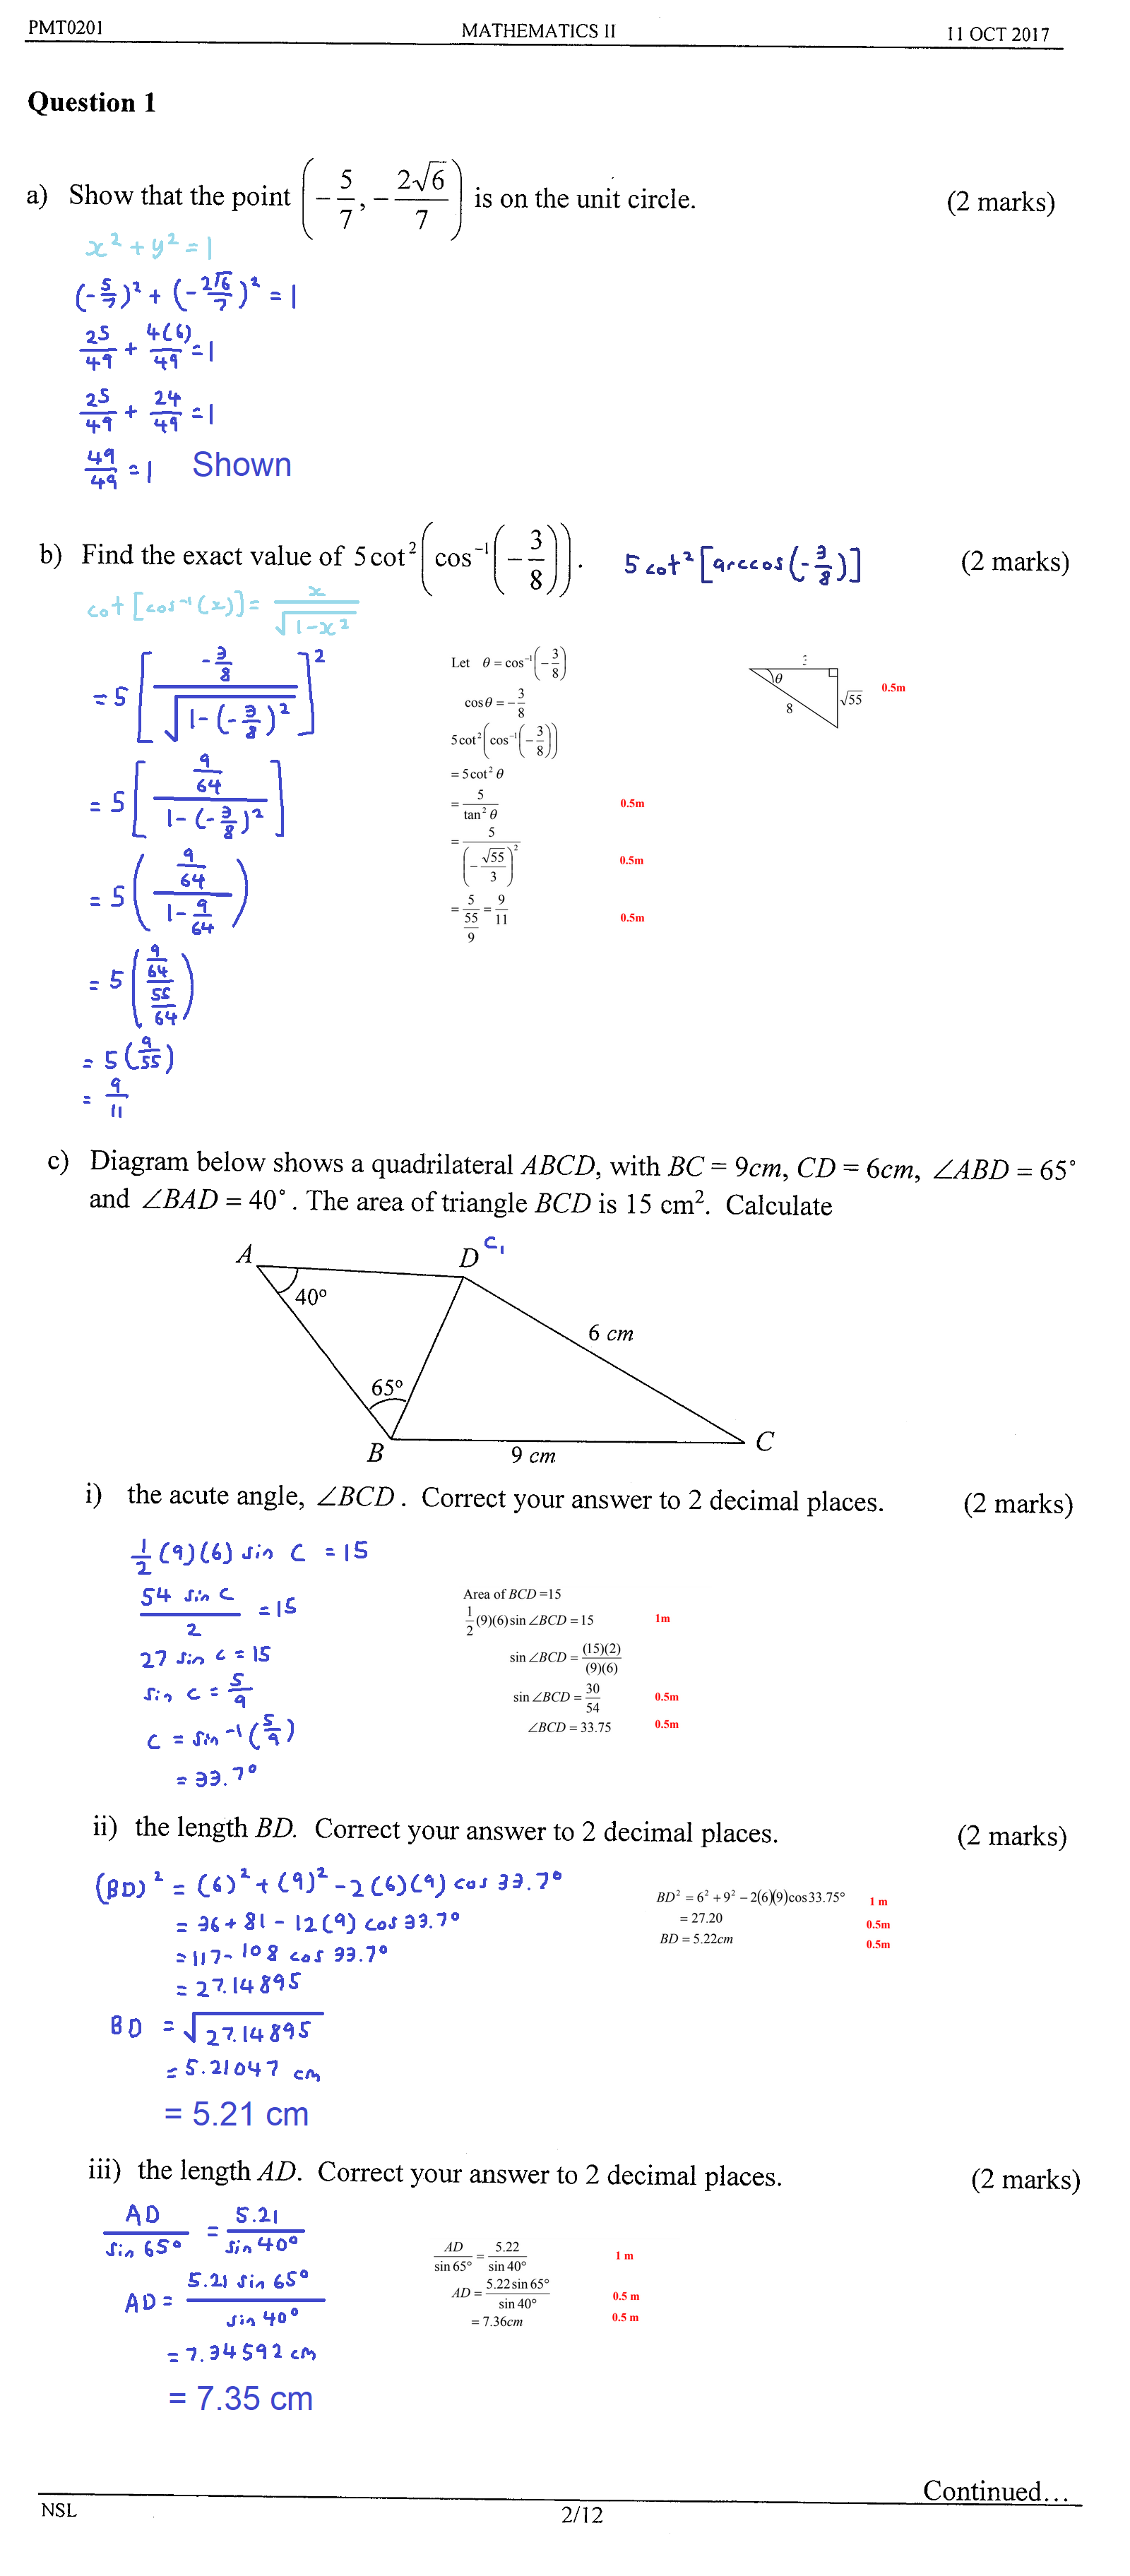 PMT0201 MATHEMATICS II 11 OCT 2017
Question 1
a) Show that the point (-5/7, -2√6/7) is on the unit circle. (2 marks)
x² + y² = 1
(-5/7)² + (-2√6/7)² = 1
25/49 + 4(6)/49 = 1
25/49 + 24/49 = 1
49/49 = 1 Shown
b) Find the exact value of 5cot²(cos⁻¹(-3/8)). 5cot²[arccos(-3/8)] (2 marks)
cot[cos⁻¹(x)] = x/√(1-x²)
= 5[(-3/8)/√(1-(-3/8)²)]²
= 5[(9/64)/(1-(-3/8)²)]
= 5((9/64)/(1-9/64))
= 5((9/64)/(55/64))
= 5(9/55)
= 9/11
Let θ = cos⁻¹(-3/8)
cosθ = -3/8
5cot²(cos⁻¹(-3/8))
= 5cot²θ
= 5/tan²θ 0.5m
= 5/(-√55/3)² 0.5m
= 5/(55/9) = 9/11 0.5m
θ
8
√55
0.5m
c) Diagram below shows a quadrilateral ABCD, with BC = 9cm, CD = 6cm, ∠ABD = 65°
and ∠BAD = 40°. The area of triangle BCD is 15 cm². Calculate
A D C₁
40°
6 cm
65°
B 9 cm C
i) the acute angle, ∠BCD. Correct your answer to 2 decimal places. (2 marks)
½(9)(6) sin C = 15
54 sin C/2 = 15
27 sin C = 15
sin C = 5/9
C = sin⁻¹(5/9)
= 33.7°
Area of BCD =15
½(9)(6)sin∠BCD = 15 1m
sin∠BCD = (15)(2)/(9)(6)
sin∠BCD = 30/54 0.5m
∠BCD = 33.75 0.5m
ii) the length BD. Correct your answer to 2 decimal places. (2 marks)
(BD)² = (6)² + (9)² - 2(6)(9) cos 33.7°
= 36 + 81 - 12(9) cos 33.7°
= 117 - 108 cos 33.7°
= 27.14895
BD = √27.14895
= 5.21047 cm
= 5.21 cm
BD² = 6² + 9² - 2(6)(9)cos33.75° 1 m
= 27.20 0.5m
BD = 5.22cm 0.5m
iii) the length AD. Correct your answer to 2 decimal places. (2 marks)
AD/sin 65° = 5.21/sin 40°
AD = 5.21 sin 65°/sin 40°
= 7.34592 cm
= 7.35 cm
AD/sin65° = 5.22/sin40° 1 m
AD = 5.22sin65°/sin40° 0.5 m
= 7.36cm 0.5 m
Continued...
NSL 2/12